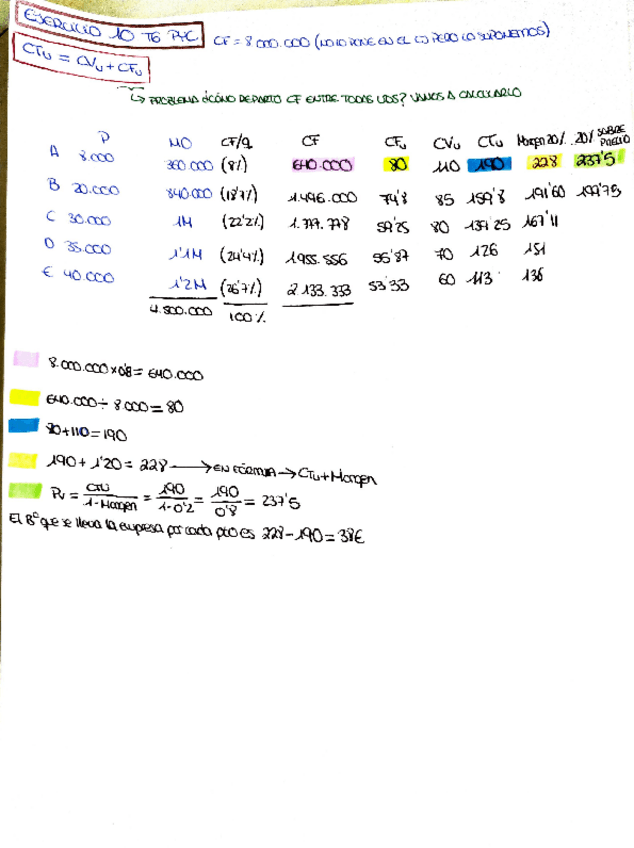 EJERCICIO 10 T6 PYC
CF = 8 000.000 (NO LO PONE EN EL EJ PERO LO SUPONEMOS)
CTu = CVu + CFu
↳ PROBLEMA ¿CÓMO REPARTO CF ENTRE TODAS UDS? VAMOS A CALCULARLO
P MO CF/q CF CFu CVu CTu Margen 20% 20% SOBRE PRECIO
A 8.000 360.000 (8%) 640.000 80 110 190 228 237'5
B 20.000 840.000 (18'7%) 1.496.000 74'8 85 159'8 191'60 199'75
C 30.000 1M (22'2%) 1.777.778 59'25 80 139'25 167'11
D 35.000 1'1M (24'4%) 1955.556 55'87 70 126 151
E 40.000 1'2M (26'7%) 2 133.333 53'33 60 113 136
4.500.000 100%
8.000.000 × 0'8 = 640.000
640.000 ÷ 8.000 = 80
80 + 110 = 190
190 + 1'20 = 228 → EN FÓRMULA → CTu + Margen
Pv = CTU / 1 - Margen = 190 / 1 - 0'2 = 190 / 0'8 = 237'5
El Bº que se lleva la empresa por cada pto es 228 - 190 = 38€